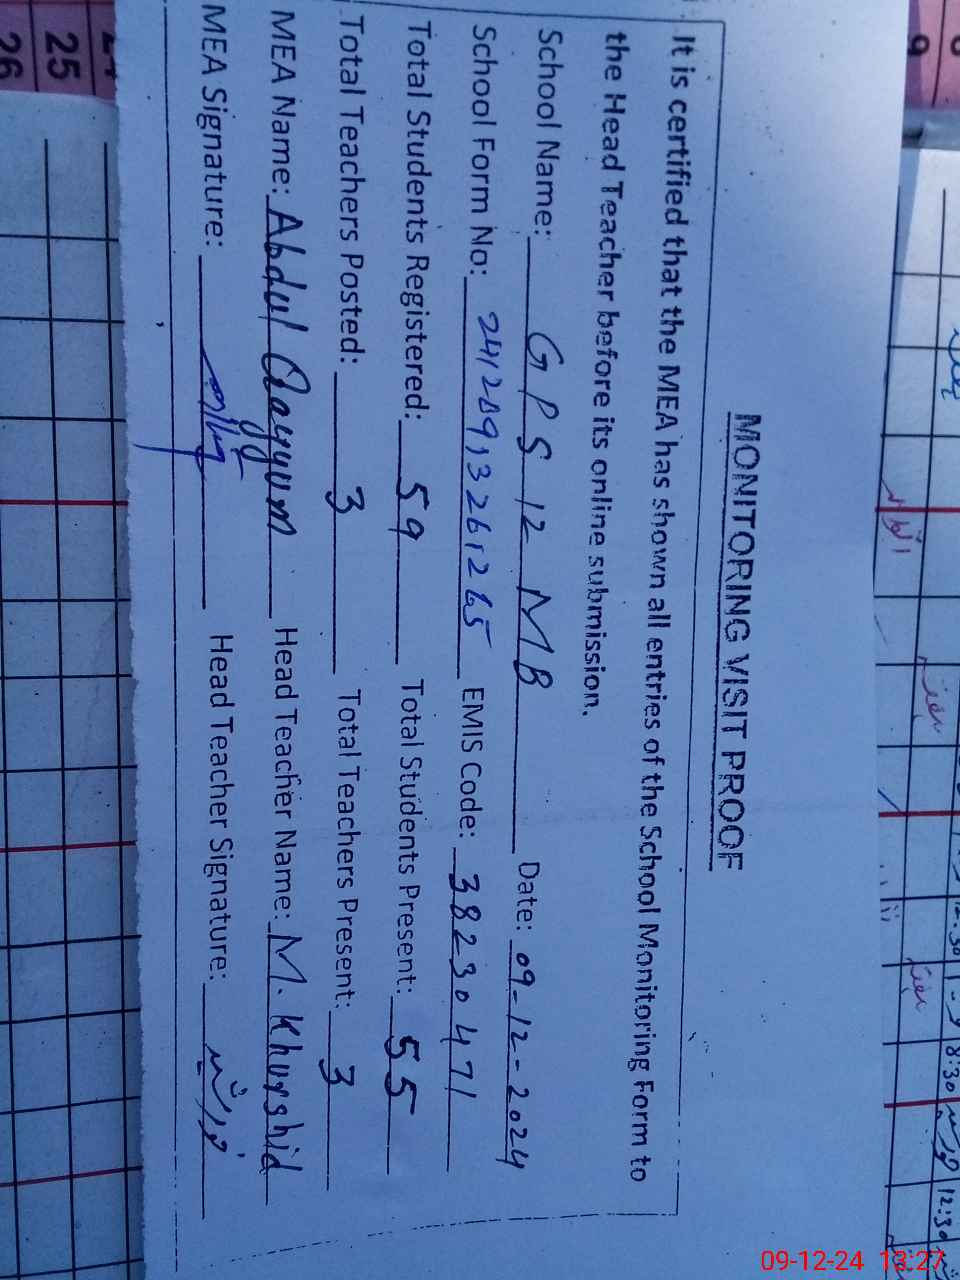 MONITORING VISIT PROOF
It is certified that the MEA has shown all entries of the School Monitoring Form to
the Head Teacher before its online submission.
School Name: GPS 12 MB Date: 09-12-2024
School Form No: EMIS Code: 38230471
Total Students Registered: 59 Total Students Present: 55
Total Teachers Posted: 3 Total Teachers Present: 3
MEA Name: Abdul Qayyum Head Teacher Name: M. Khurshid
MEA Signature: Head Teacher Signature:
25
26
9
8:30
12:30
09-12-24 13:27